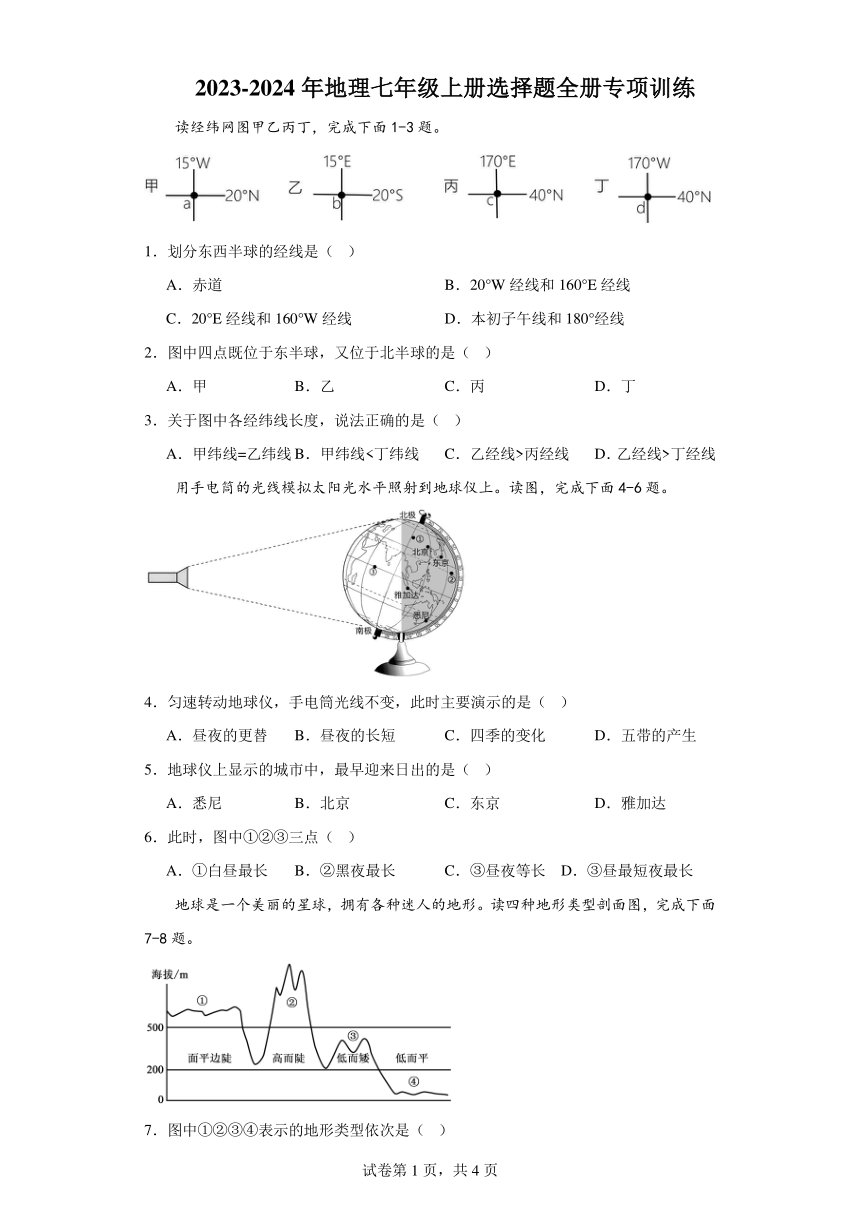 2023-2024年地理七年级上册选择题全册专项训练
读经纬网图甲乙丙丁，完成下面1-3题。
甲 15°W 20°N a 乙 15°E 20°S b 丙 170°E 40°N c 丁 170°W 40°N d
1．划分东西半球的经线是（ ）
A．赤道 B．20°W经线和160°E经线
C．20°E经线和160°W经线 D．本初子午线和180°经线
2．图中四点既位于东半球，又位于北半球的是（ ）
A．甲 B．乙 C．丙 D．丁
3．关于图中各经纬线长度，说法正确的是（ ）
A．甲纬线=乙纬线 B．甲纬线<丁纬线 C．乙经线>丙经线 D．乙经线>丁经线
用手电筒的光线模拟太阳光水平照射到地球仪上。读图，完成下面4-6题。
北极
①
北京
东京
①
②
雅加达
悉尼
南极
4．匀速转动地球仪，手电筒光线不变，此时主要演示的是（ ）
A．昼夜的更替 B．昼夜的长短 C．四季的变化 D．五带的产生
5．地球仪上显示的城市中，最早迎来日出的是（ ）
A．悉尼 B．北京 C．东京 D．雅加达
6．此时，图中①②③三点（ ）
A．①白昼最长 B．②黑夜最长 C．③昼夜等长 D．③昼最短夜最长
地球是一个美丽的星球，拥有各种迷人的地形。读四种地形类型剖面图，完成下面
7-8题。
海拔/m
① ②
500
③
面平边陡 高而陡 低而矮 低而平
200
④
0
7．图中①②③④表示的地形类型依次是（ ）
试卷第1页，共4页